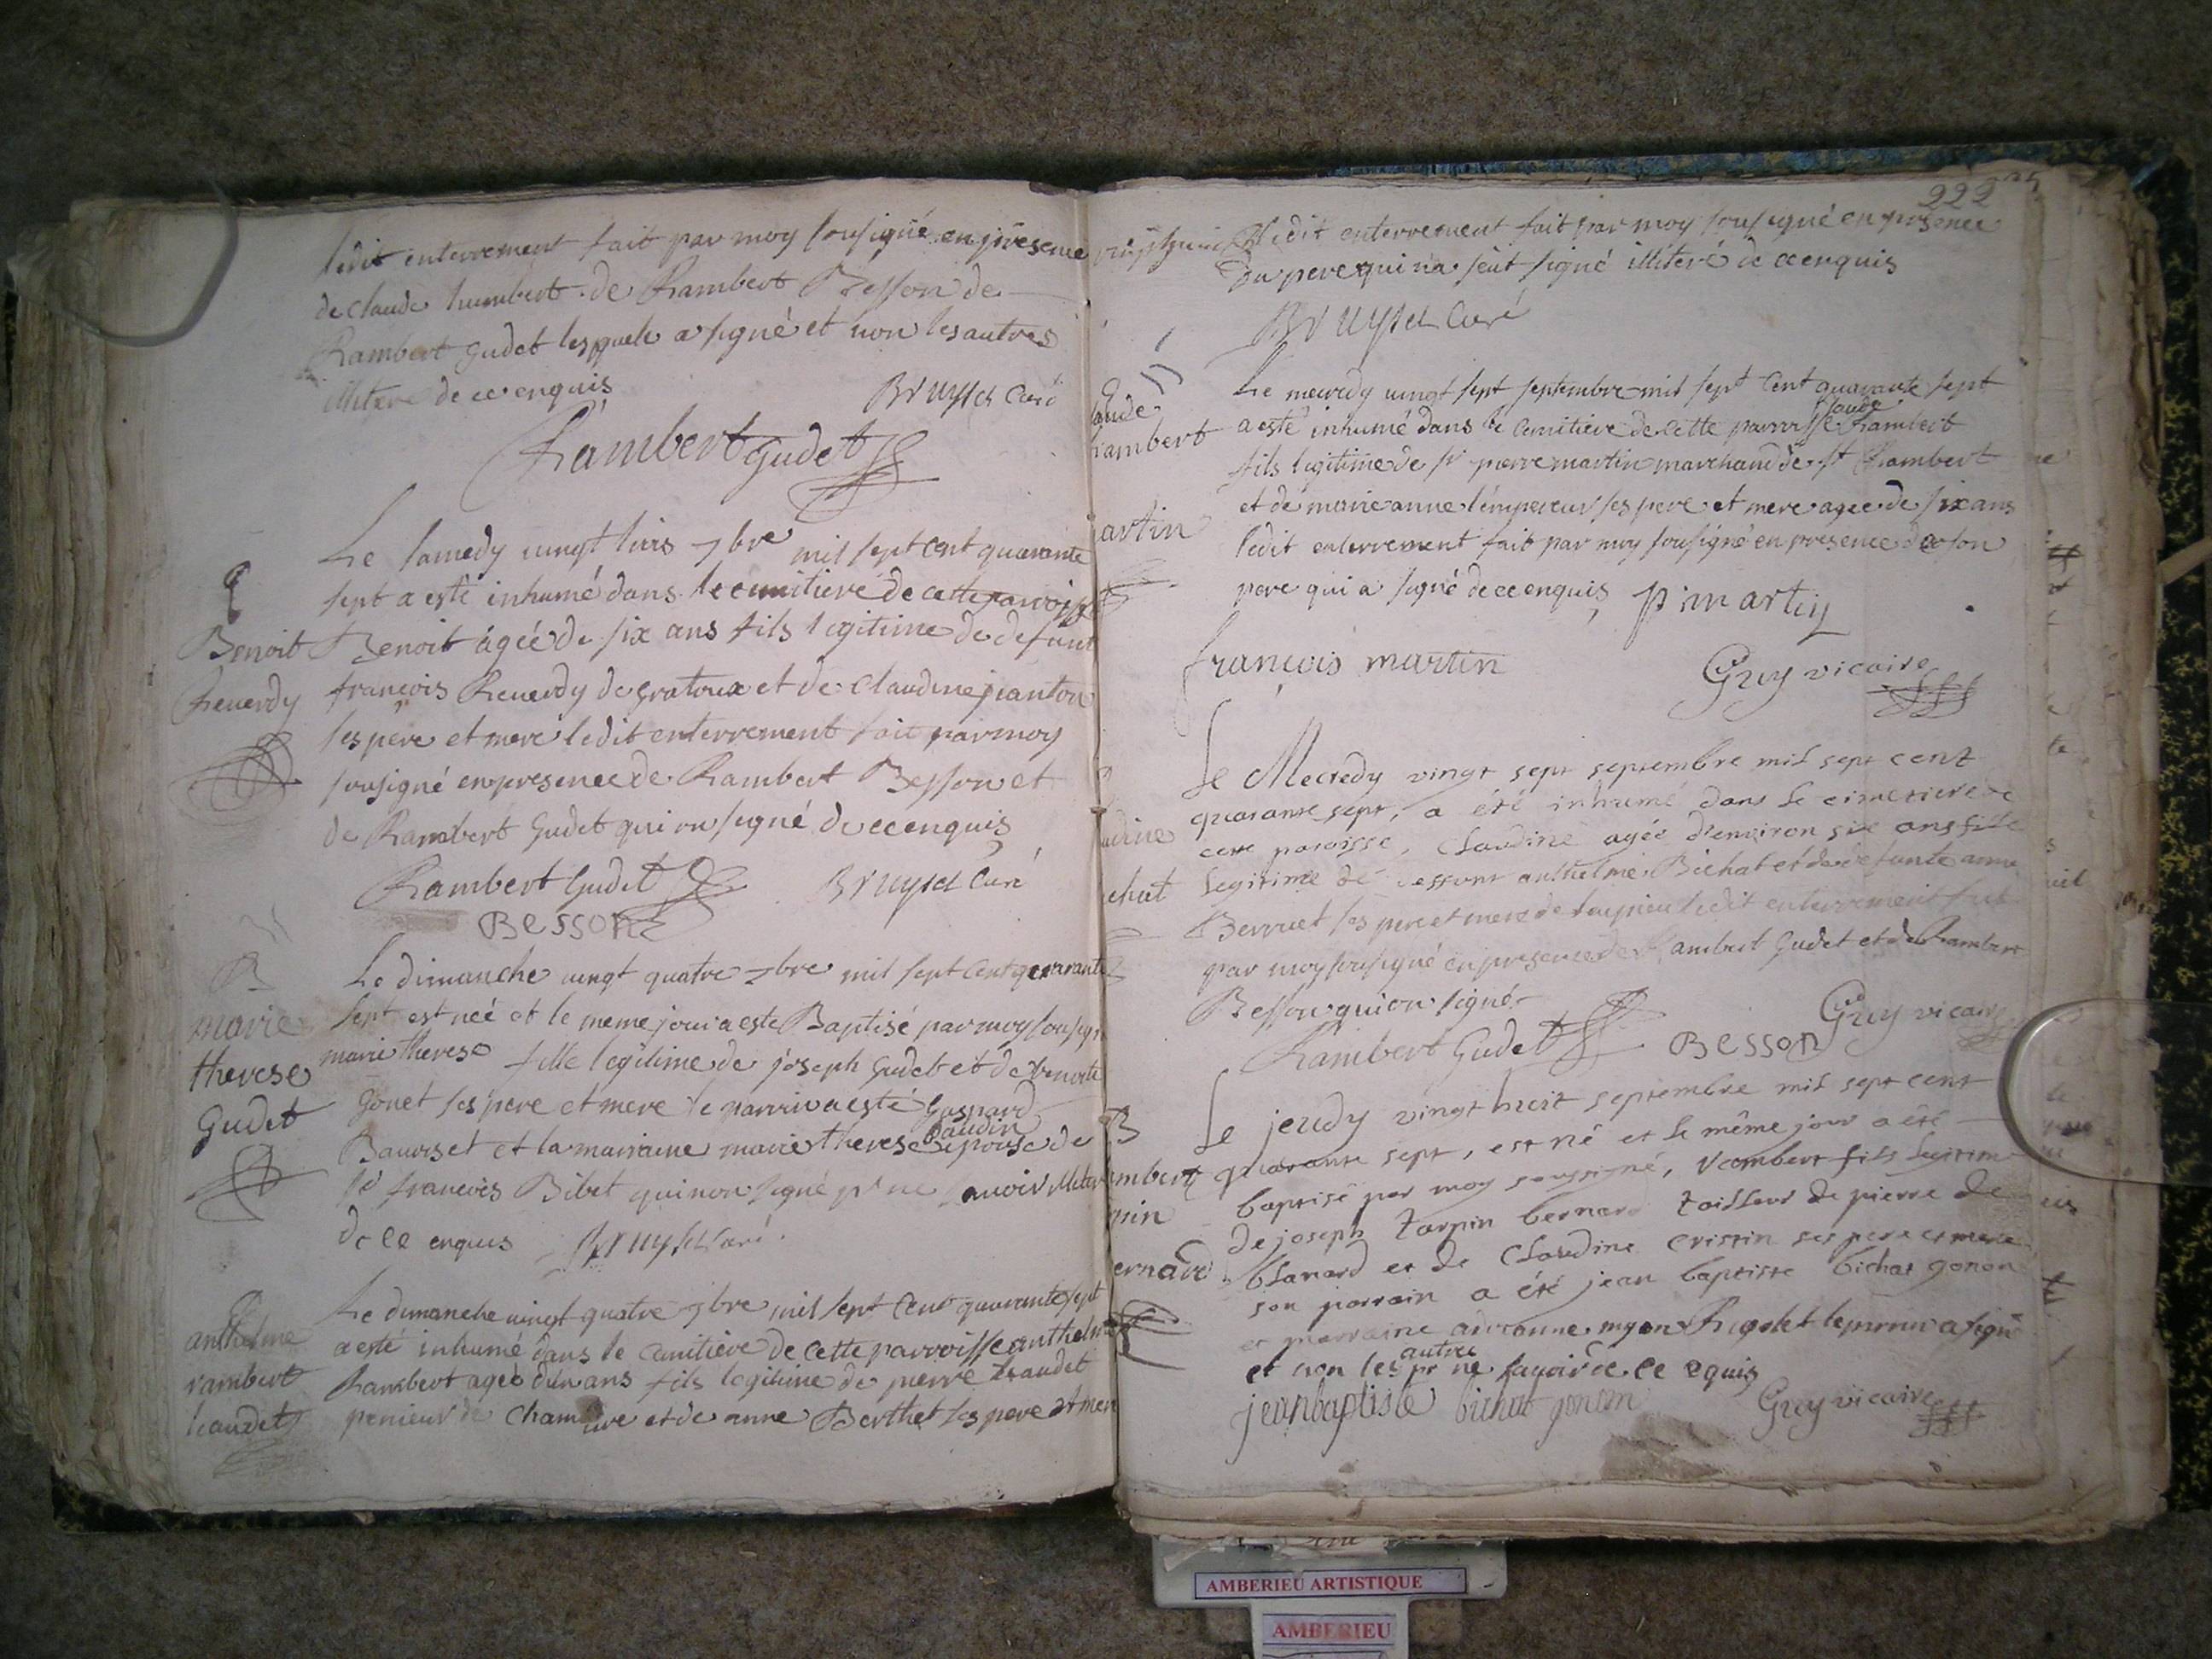 ledit enterrement fait par moy sousigné en presence
de claude humbert de Rambert Besson de
Rambert Gudet lesquels a signé et non les autres
illiteré de ce enquis
Bruyset Curé
Rambert Gudet
Le samedy vingt trois 7bre mil sept cent quarante
sept a esté inhumé dans le cemitiere de cette parroisse
Benoit
Benoit agée de six ans fils legitime de defunt
Reverdy
françois Reverdy de Gratoux et de Claudine pianton
ses pere et mere ledit enterrement fait par moy
sousigné en presence de Rambert Besson et
de Rambert Gudet qui on signé de ce enquis
Rambert Gudet
Bruyset Curé
BESSON
B
Le dimanche vingt quatre 7bre mil sept cent quarante
marie
sept est neé et le meme jour a esté Baptisé par moy sousign
therese
marie therese fille legitime de joseph Gudet et de benoite
Gudet
Gonet ses pere et mere le parrin a esté Gaspard
Baudin
et la marraine marie therese epouse de
sr françois Bibet qui non signé pr ne savoir
de ce enquis Bruyset Curé
Le dimanche vingt quatre 7bre mil sept cent quarante sept
anthelme
a esté inhumé dans le cemitiere de cette parroisse anthelm
rambert
Rambert ageé dun ans fils legitime de pierre
penieur de et de anne Berthet ses pere et mere
222
ledit enterrement fait par moy sousigné en presence
du pere qui na seut signé illiteré de ce enquis
Bruyset Curé
Le mecredy vingt sept septembre mil sept cent quarante sept
laude
claude
rambert
a esté inhumé dans le cemitiere de cette parroisse Rambert
fils legitime de sr pierre martin marchand de st Rambert
artin
et de marie anne lempereur ses pere et mere agee de six ans
ledit enterrement fait par moy sousigné en presence de son
pere qui a signé de ce enquis P martin
françois martin
Guy vicaire
Le Mecredy vingt sept septembre mil sept cent
quarante sept, a été inhumé dans le cimetiere de
udine
cette paroisse, Claudine agée d'environ six ans fille
chat
legitime de deffunt anthelme Bichat et de defunte anne
Berruet ses pere et mere de ledit enterrement fait
par moy sousigné en presence de Rambert Gudet et de Rambert
Besson qui on signé
Rambert Gudet BESSON Guy vicaire
B
Le jeudy vingt huit septembre mil sept cent
quarante sept, est né et le même jour a été
ambert
baptisé par moy soussigné, rambert fils legitime
pin
de joseph tarpin bernard tailleur de pierre de
ernard
blanard et de Claudine cristin ses pere et mere
son parrain a été jean baptiste bichat gonon
et marraine Rigolet le parrin a signé
autres
et non les pr ne savoir de ce equis
jean baptiste bichat gonon
Guy vicaire
AMBERIEU ARTISTIQUE
AMBERIEU